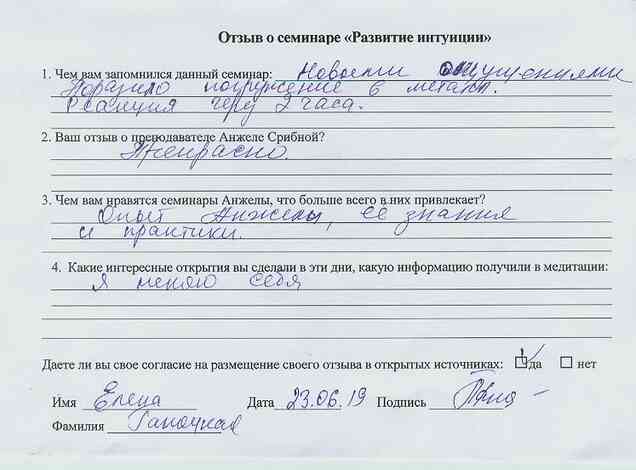 Отзыв о семинаре «Развитие интуиции»
1. Чем вам запомнился данный семинар: Новыми ощущениями
Поразило погружение в
Реакция через 2 часа.
2. Ваш отзыв о преподавателе Анжеле Срибной?
Прекрасно.
3. Чем вам нравятся семинары Анжелы, что больше всего в них привлекает?
Опыт Анжелы, её знания
и практики.
4. Какие интересные открытия вы сделали в эти дни, какую информацию получили в медитации:
Я меняю себя
Даете ли вы свое согласие на размещение своего отзыва в открытых источниках: да нет
Имя Елена Дата 23.06.19 Подпись
Фамилия